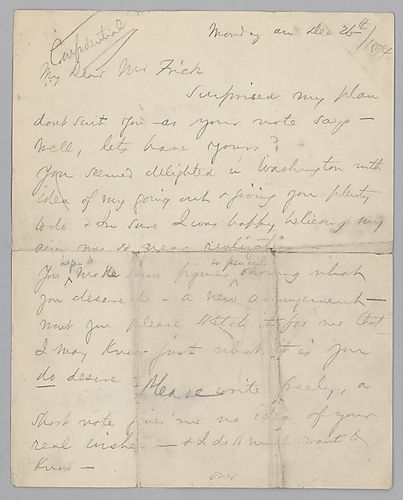 Confidential
Monday am Dec 26th/1894
My Dear Mr Frick
Surprised my plan
dont suit you — as your note says —
Well, lets have yours?
You seemed delighted in Washington with
idea of my going out & giving you plenty
to do & Im sure I was happy believing my
aim was so near realization
You began to make some figures in pencil showing what
you desired — a new arrangement —
wont you please sketch it for me that
I may know just what it is you
do desire — Please write freely, a
short note gives me no idea of your
real wishes — & I do so much want to
know —
over